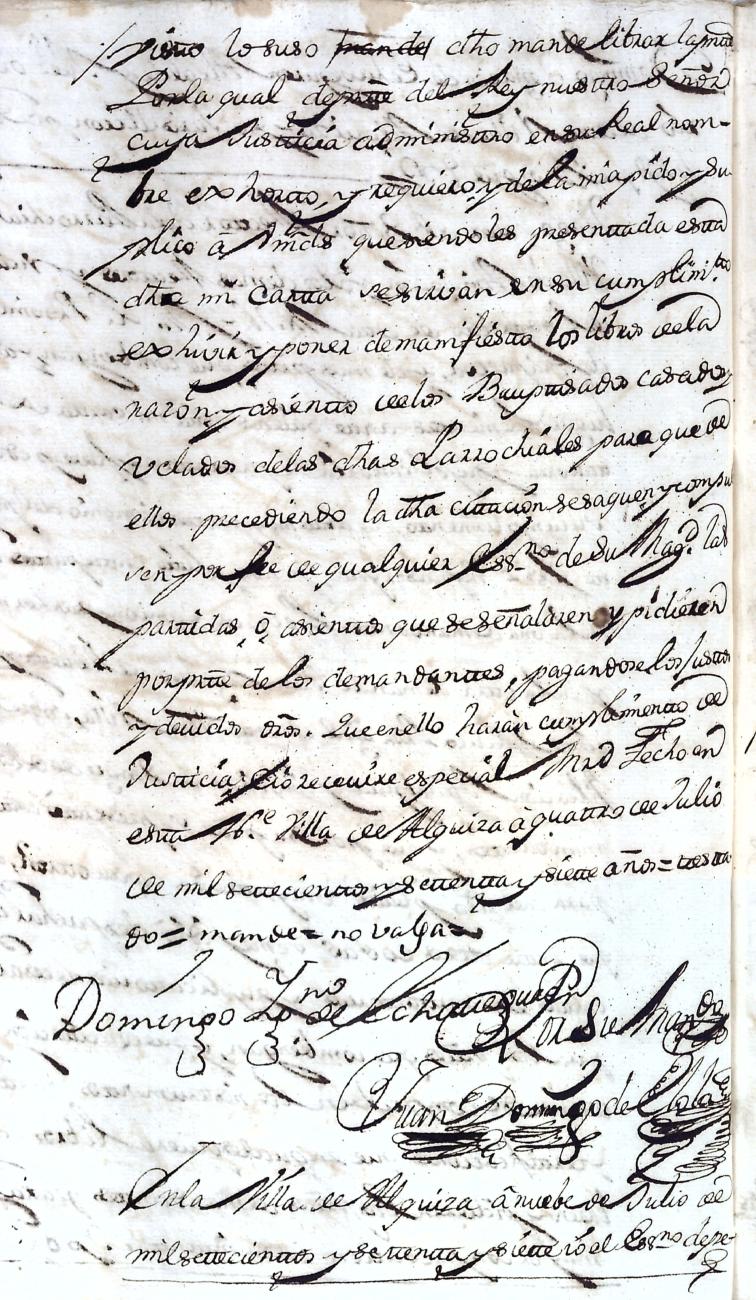 visto lo suso mande dho mande librar la prnte
Por la qual de prte del Rey nuestro Señor
cuya Justicia administro en su Real nom-
bre exhorto, y requiero, y de la mia pido y su-
plico â Vmds que siendoles presentada esta
dha mi Carta se sirvan en su cumplim.to
exhivir y poner de manifiesto los libros de la
razon y asiento de los Bauptisados casados y
velados de las dhas Parrochiales para que de
ellos precediendo la dha citacion se saquen y compu
sen por fee de qualquier Ess.no de su Mag.d las
partidas, ô, asientos que se señalaren y pidieren
por prte de los demandantes, pagandose los Justos
y devidos dros. Que en ello harán cumplimento de
Justicia, è io receuire especial Mrd Fecho en
esta N.e Villa de Alquiza â quattro de Julio
de mil settecientos y settentta y siette años = testa
do = mande = no valga =
Domingo Yn.o de Echaveguren Por su Mando
Juan Domingo de
En la Villa de Alquiza â nuebe de Julio de
mil settecientos y settentta y siette io el Ess.no de pe-